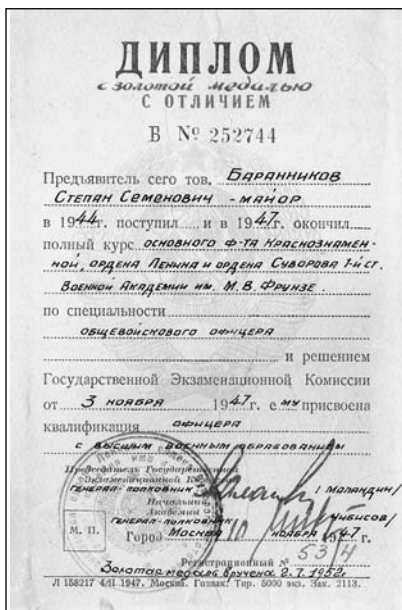 ДИПЛОМ
с золотой медалью
С ОТЛИЧИЕМ
Б № 252744
Предъявитель сего тов. БАРАННИКОВ
СТЕПАН СЕМЕНОВИЧ - МАЙОР
в 1944 г. поступил и в 1947 г. окончил
полный курс ОСНОВНОГО Ф-ТА КРАСНОЗНАМЕН-
НОЙ, ОРДЕНА ЛЕНИНА И ОРДЕНА СУВОРОВА 1-Й СТ.
ВОЕННОЙ АКАДЕМИИ ИМ. М.В. ФРУНЗЕ.
по специальности
ОБЩЕВОЙСКОВОГО ОФИЦЕРА
и решением
Государственной Экзаменационной Комиссии
от 3 НОЯБРЯ 1947 г. ему присвоена
квалификация ОФИЦЕРА
С ВЫСШИМ ВОЕННЫМ ОБРАЗОВАНИЕМ
Председатель Государственной
Экзаменационной Комиссии
ГЕНЕРАЛ-ПОЛКОВНИК /МАЛАНДИН/
Начальник
Академии
ГЕНЕРАЛ-ПОЛКОВНИК /ЧИБИСОВ/
М. П. Город МОСКВА 10 НОЯБРЯ 1947 г.
Регистрационный № 53/4
Золотая медаль вручена 2.7.1952г
Л 158217 4/II 1947. Москва. Гознак. Тир. 5000 экз. Зак. 2113.